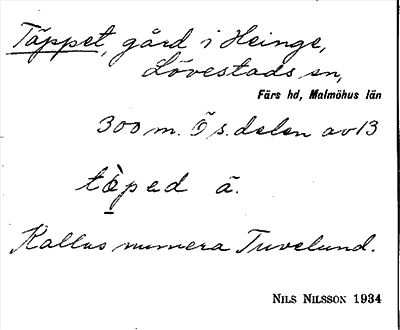 Täppet, gård i Heinge,
Lövestads sn,
Färs hd, Malmöhus län
300 m. Ö s. delen av 13
tæ̀ped ā.
Kallas numera Tuvelund.
NILS NILSSON 1934